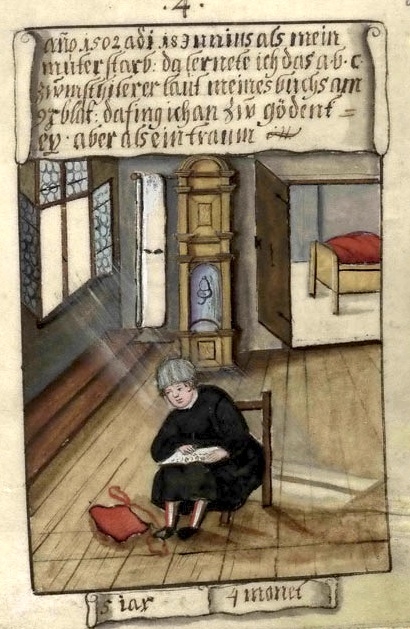 .4.
año. 1502 adi 18 Junius als mein
muter starb: da lernete ich das a. b. c.
laut meines buchs am
blat: da fing ich an zü gedenk=
en. aber als ein traum
5 iar 4 monet